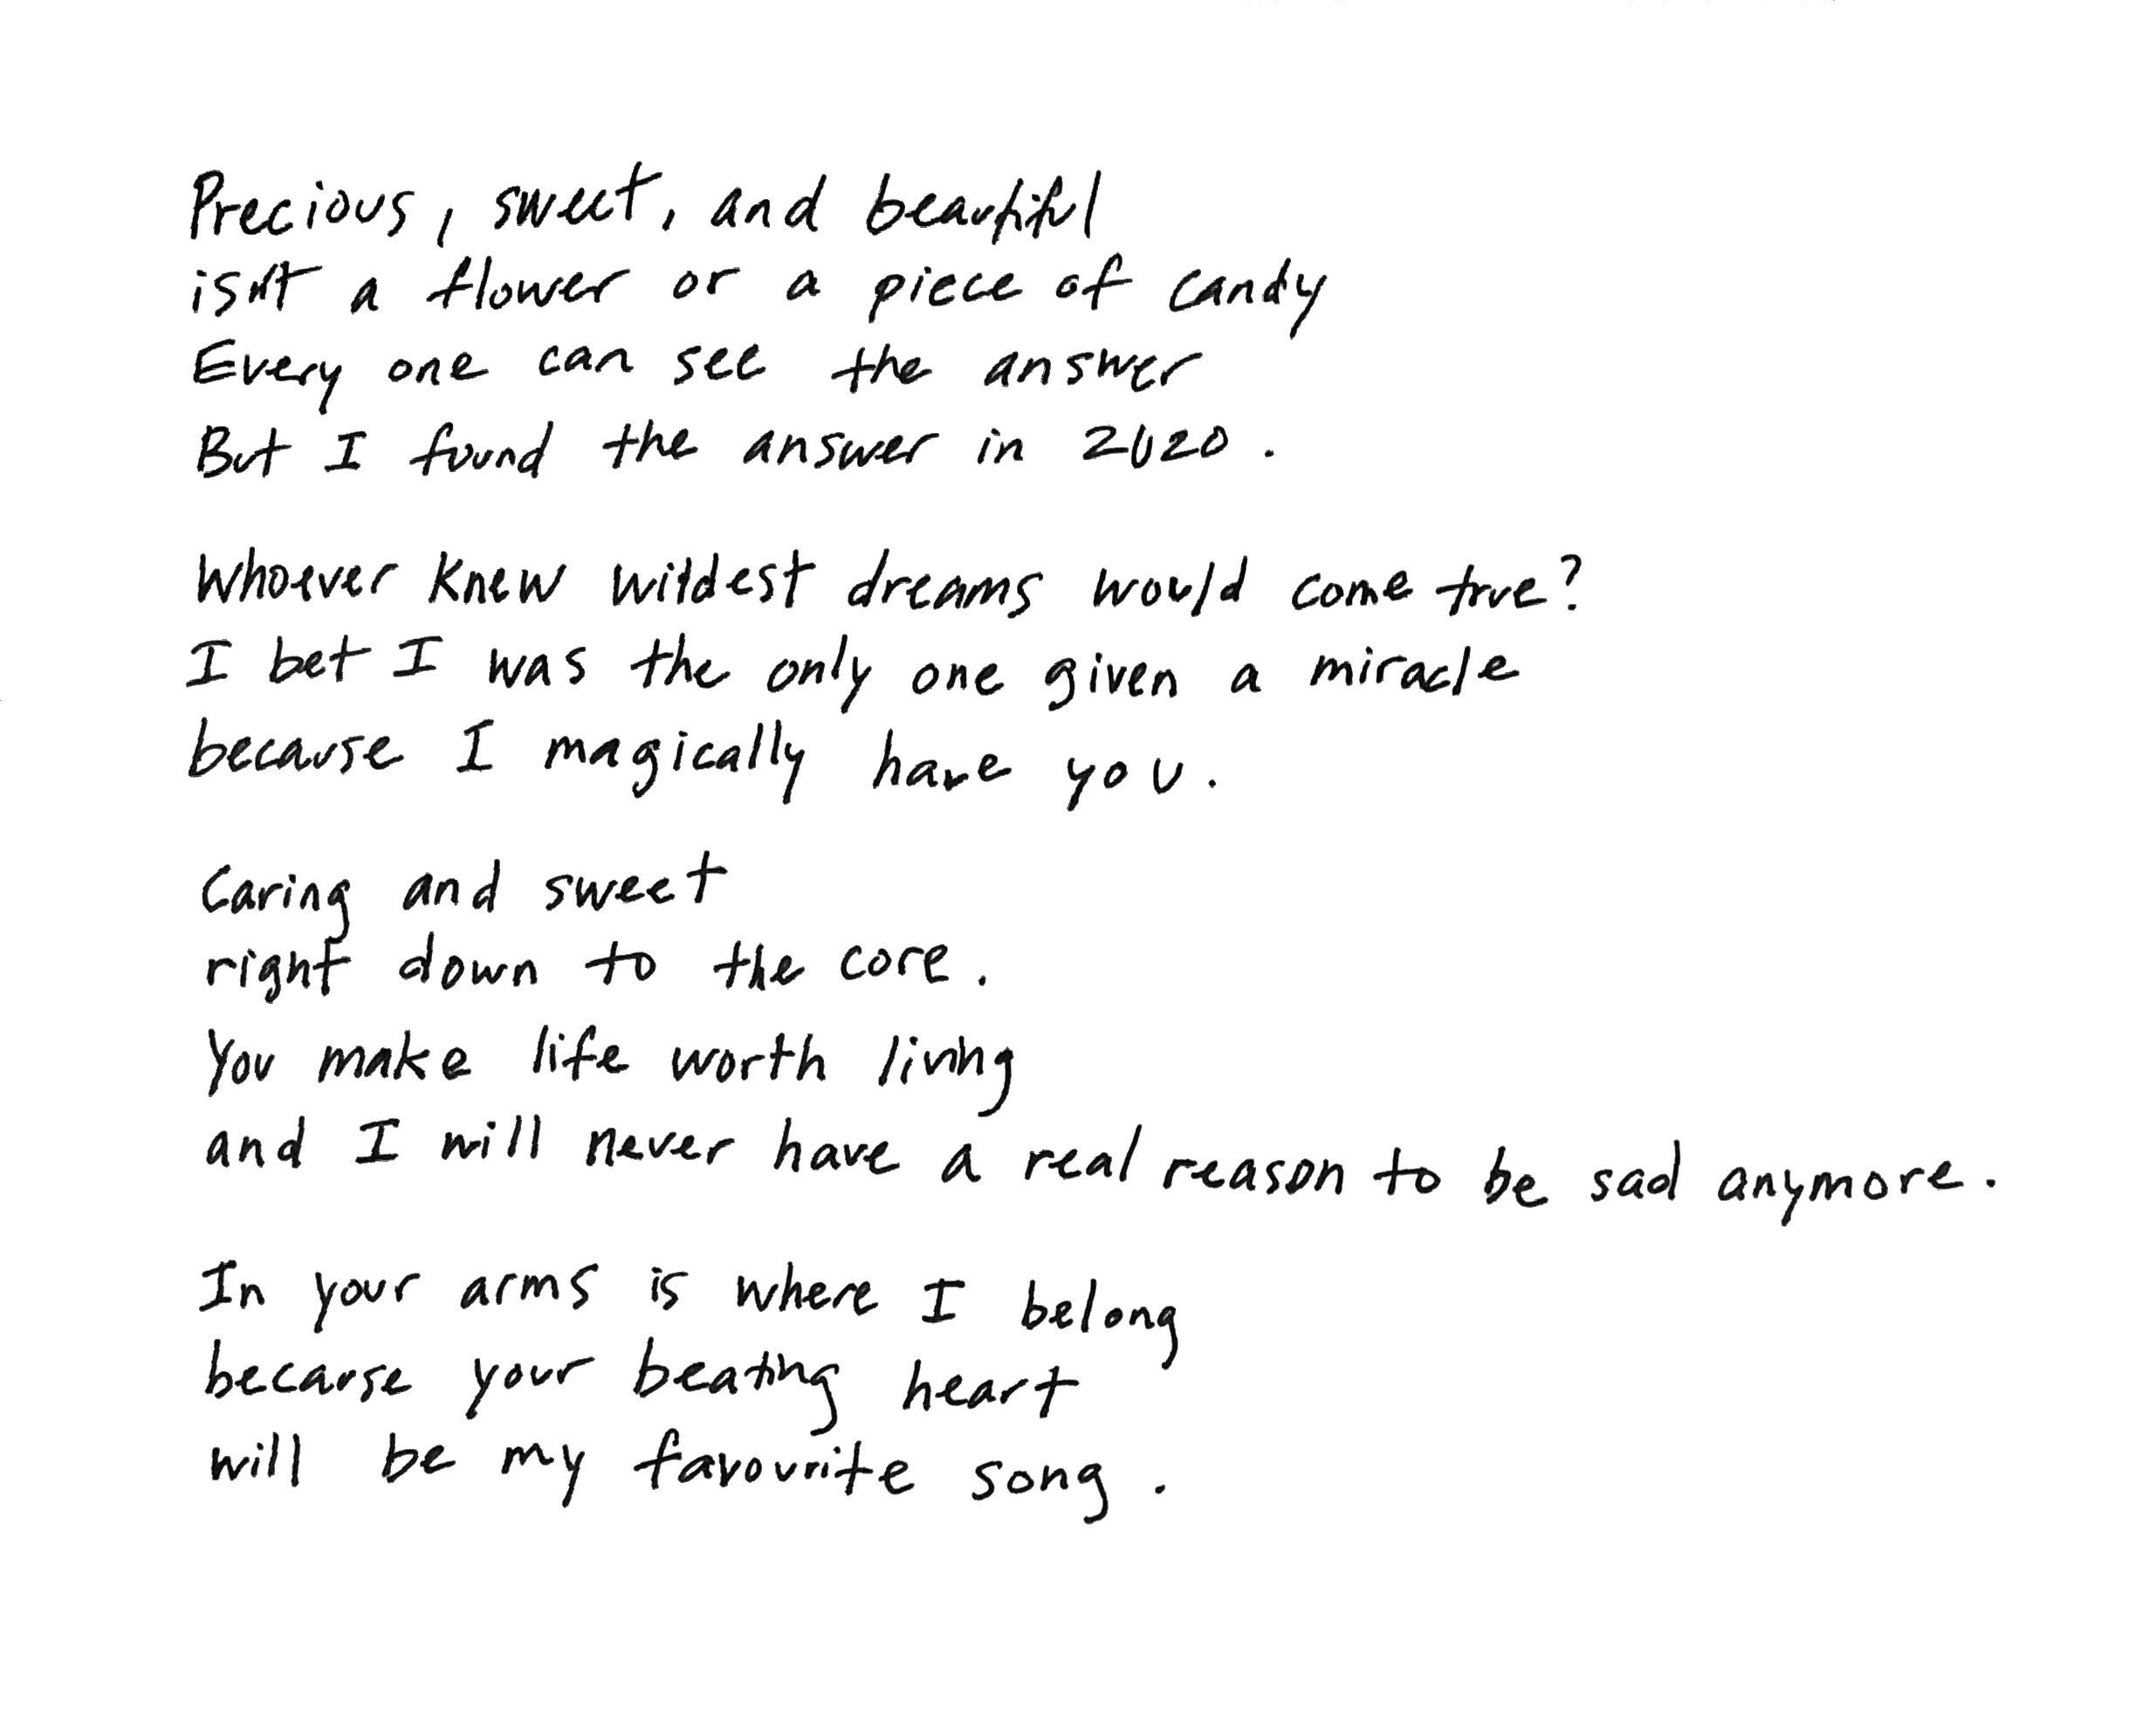 Precious, sweet, and beautiful
isn't a flower or a piece of candy
Every one can see the answer
But I found the answer in 2020.
Whoever knew wildest dreams would come true?
I bet I was the only one given a miracle
because I magically have you.
Caring and sweet
right down to the core.
You make life worth living
and I will never have a real reason to be sad anymore.
In your arms is where I belong
because your beating heart
will be my favourite song.